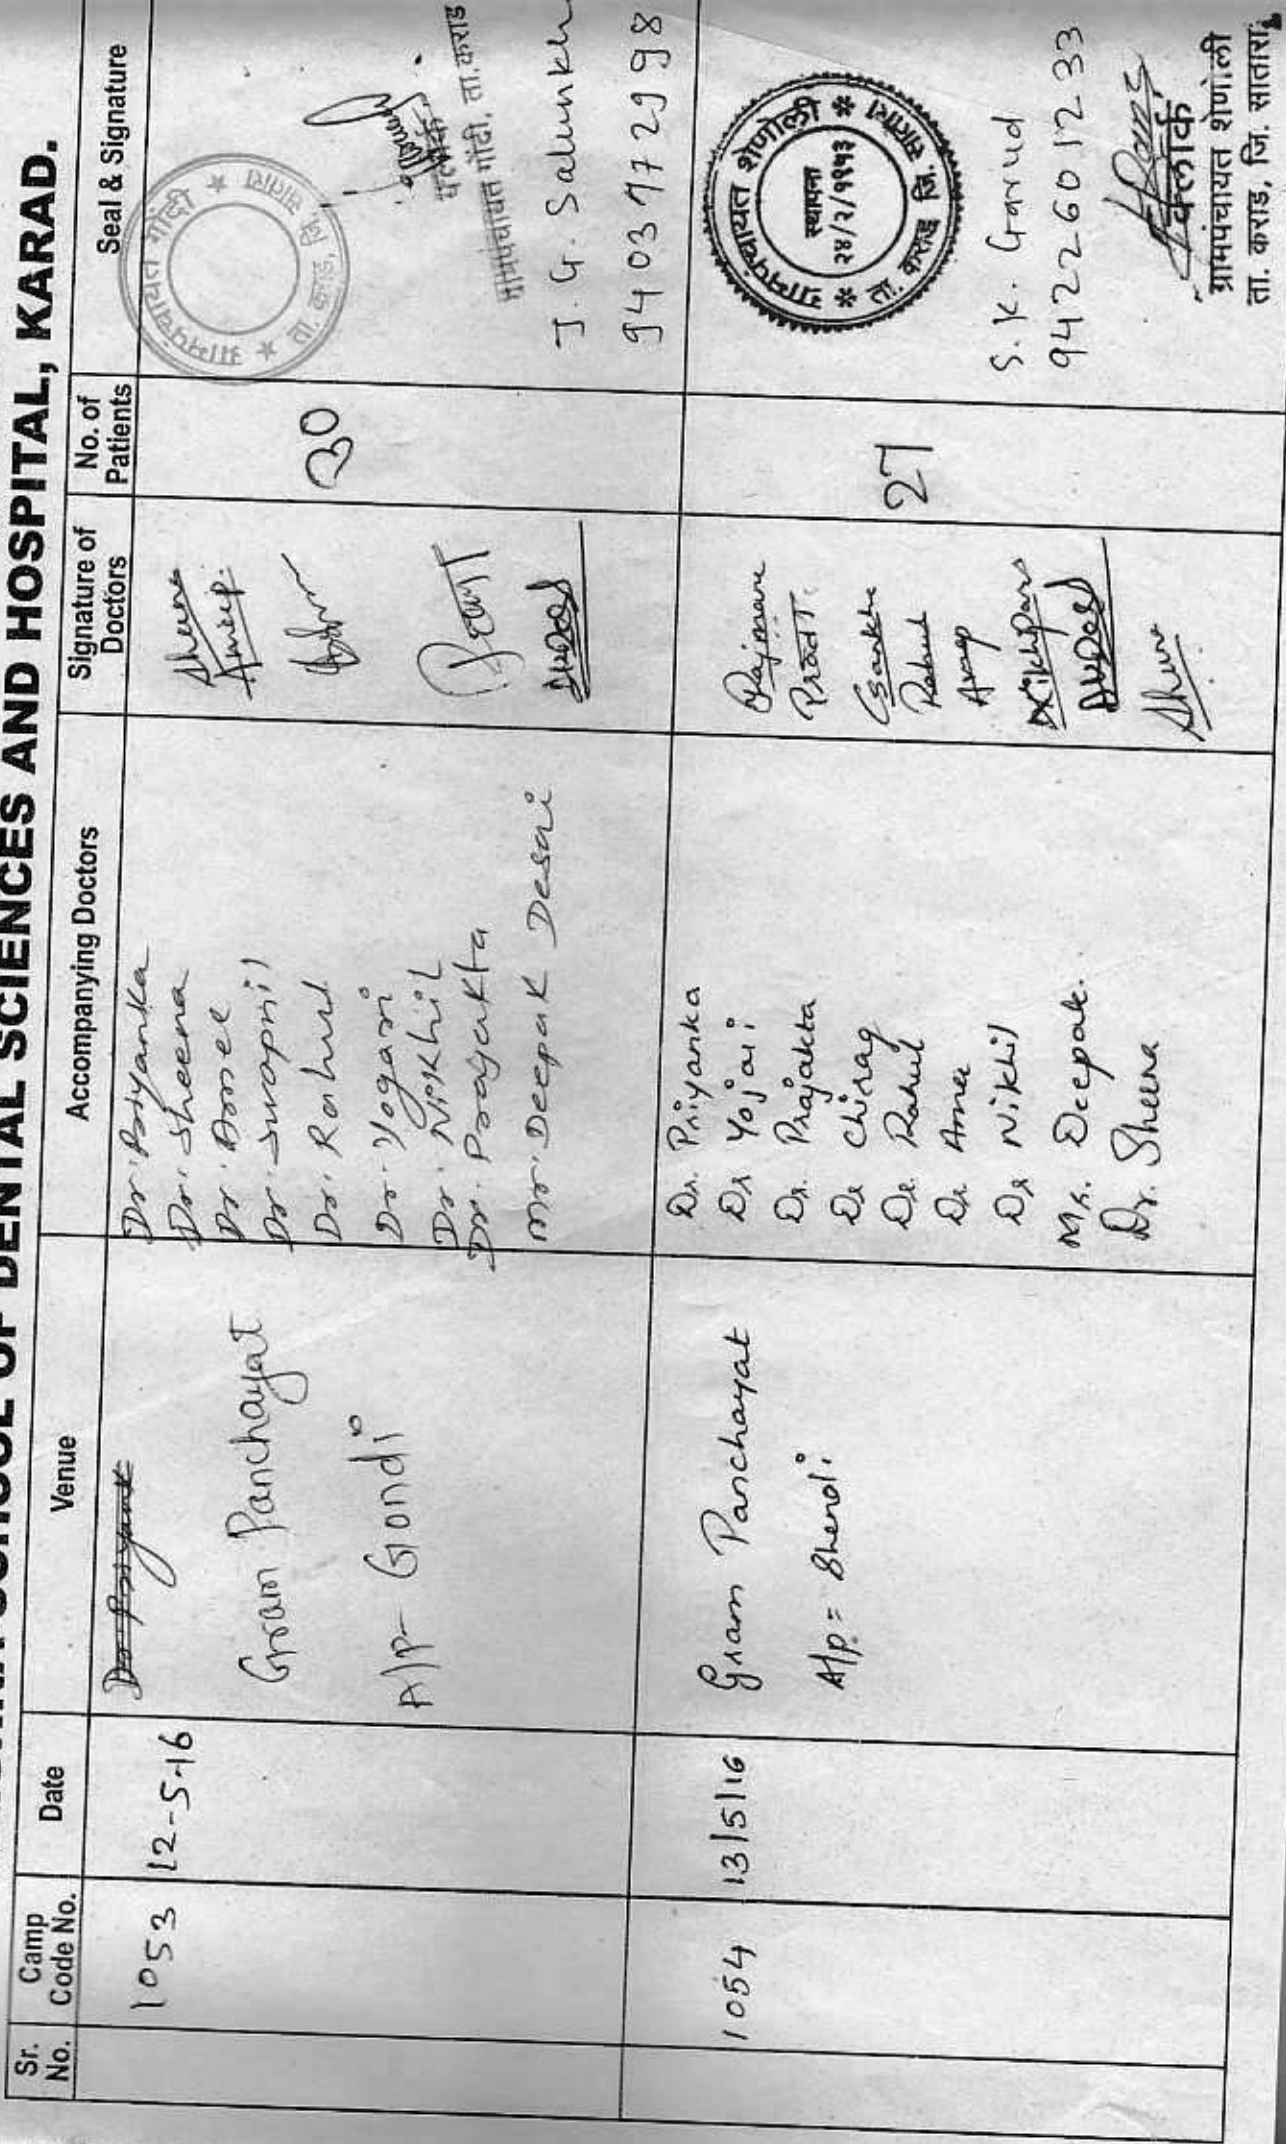 SCHOOL OF DENTAL SCIENCES AND HOSPITAL, KARAD.
Sr. No.
Camp Code No.
Date
Venue
Accompanying Doctors
Signature of Doctors
No. of Patients
Seal & Signature
1053
12-5-16
Gram Panchayat
A/P- Gondi
Dr. Priyanka
Dr. Sheena
Dr. Amee
Dr. Swapnil
Dr. Rahul
Dr. Yogani
Dr. Nikhil
Dr. Prajakta
Mr. Deepak Desai
30
ग्रामपंचायत गोंदी
ता. कराड, जि. सातारा
क्लार्क
ग्रामपंचायत गोंदी, ता. कराड
J. G. Salunkh
9403772998
1054
13/5/16
Gram Panchayat
A/p = Shenoli
Dr. Priyanka
Dr Yojai
Dr. Prajakta
Dr Chirag
Dr. Rahul
Dr. Amee
Dr Nikhil
Mr. Deepak.
Dr. Sheena
Rajmane
Rahul
27
ग्रामपंचायत शेणोली
स्थापना
२४/२/१९१३
ता. कराड जि. सातारा
S. K. Garud
9422601233
क्लार्क
ग्रामपंचायत शेणोली
ता. कराड, जि. सातारा.